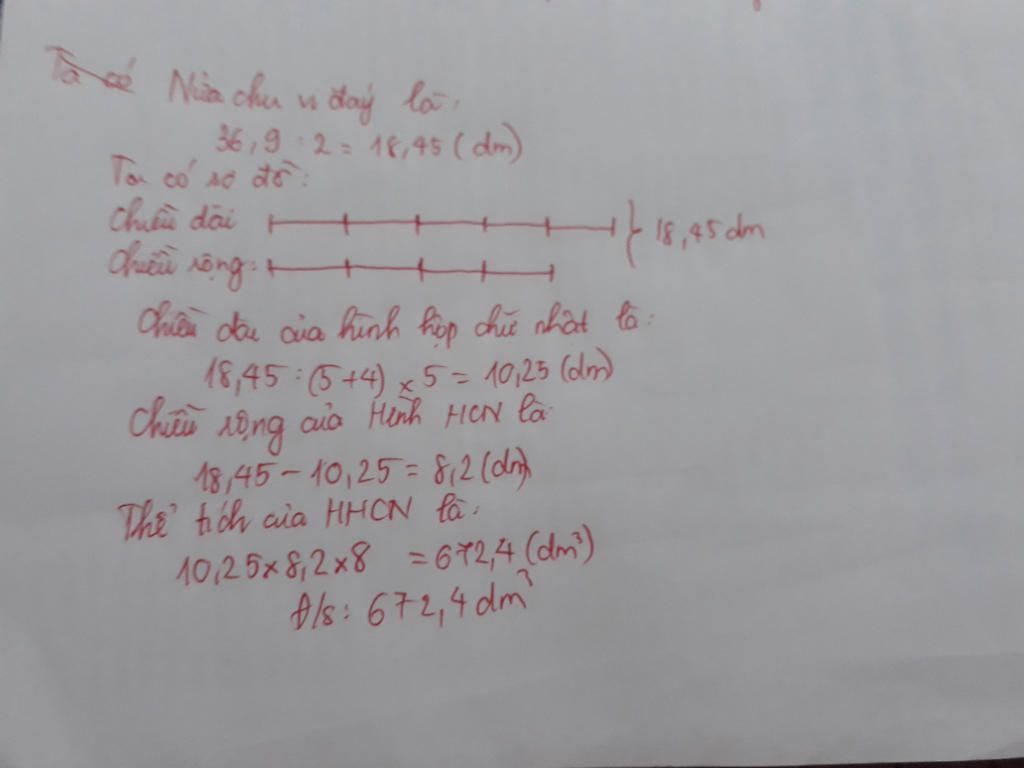 Ta có Nửa chu vi đáy là:
36,9 : 2 = 18,45 (dm)
Ta có sơ đồ:
Chiều dài 18,45 dm
Chiều rộng:
Chiều dài của hình hộp chữ nhật là:
18,45 : (5+4) × 5 = 10,25 (dm)
Chiều rộng của Hình HCN là:
18,45 - 10,25 = 8,2 (dm)
Thể tích của HHCN là:
10,25 × 8,2 × 8 = 672,4 (dm³)
Đ/s: 672,4 dm³